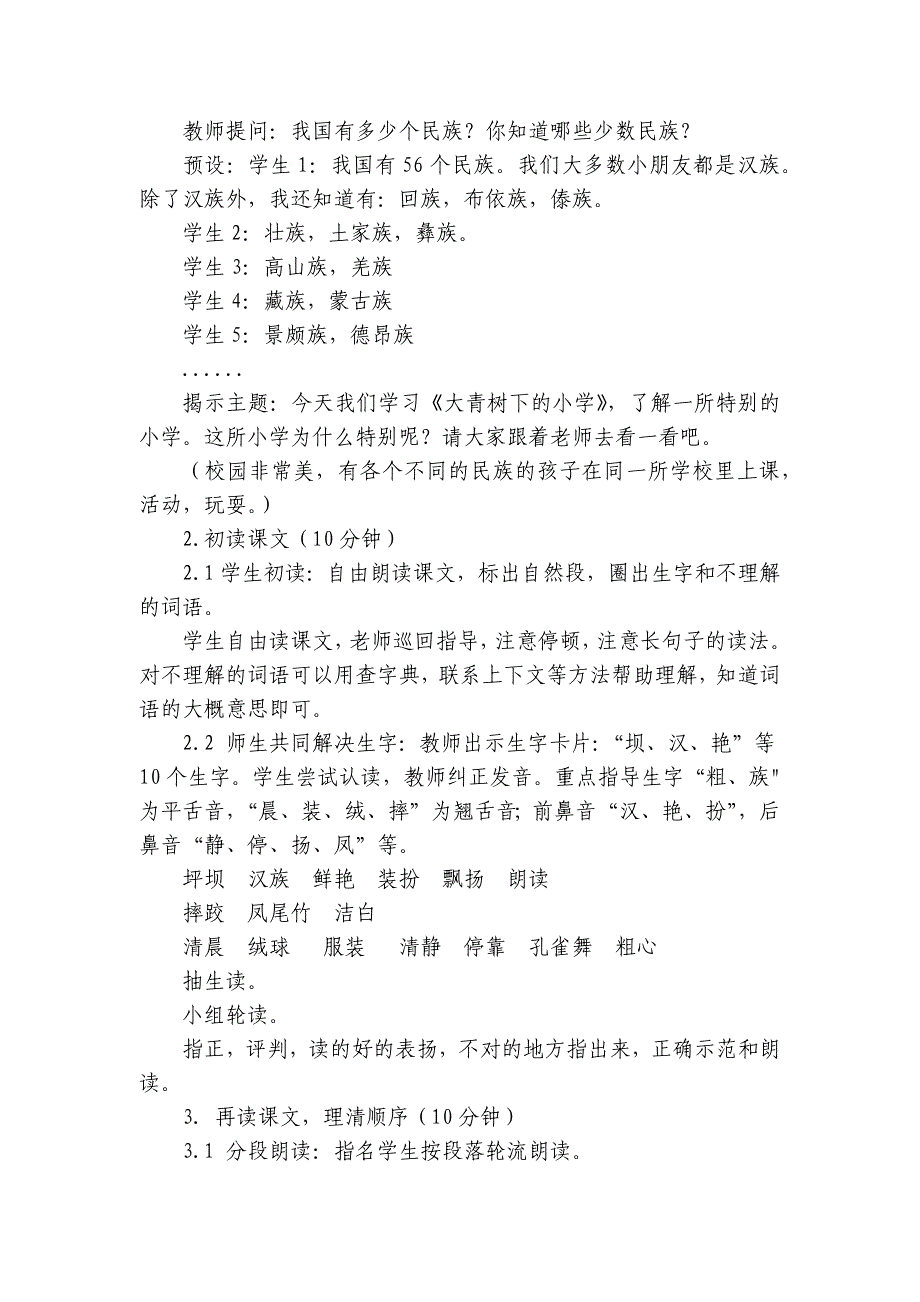 教师提问：我国有多少个民族？你知道哪些少数民族？
预设：学生 1：我国有 56 个民族。我们大多数小朋友都是汉族。
除了汉族外，我还知道有：回族，布依族，傣族。
学生 2：壮族，土家族，彝族。
学生 3：高山族，羌族
学生 4：藏族，蒙古族
学生 5：景颇族，德昂族
......
揭示主题：今天我们学习《大青树下的小学》，了解一所特别的
小学。这所小学为什么特别呢？请大家跟着老师去看一看吧。
（校园非常美，有各个不同的民族的孩子在同一所学校里上课，
活动，玩耍。）
2.初读课文（10 分钟）
2.1 学生初读：自由朗读课文，标出自然段，圈出生字和不理解
的词语。
学生自由读课文，老师巡回指导，注意停顿，注意长句子的读法。
对不理解的词语可以用查字典，联系上下文等方法帮助理解，知道词
语的大概意思即可。
2.2 师生共同解决生字：教师出示生字卡片：“坝、汉、艳”等
10 个生字。学生尝试认读，教师纠正发音。重点指导生字“粗、族"
为平舌音，“晨、装、绒、摔”为翘舌音；前鼻音“汉、艳、扮”，后
鼻音“静、停、扬、凤”等。
坪坝 汉族 鲜艳 装扮 飘扬 朗读
摔跤 凤尾竹 洁白
清晨 绒球 服装 清静 停靠 孔雀舞 粗心
抽生读。
小组轮读。
指正，评判，读的好的表扬，不对的地方指出来，正确示范和朗
读。
3. 再读课文，理清顺序（10 分钟）
3.1 分段朗读：指名学生按段落轮流朗读。